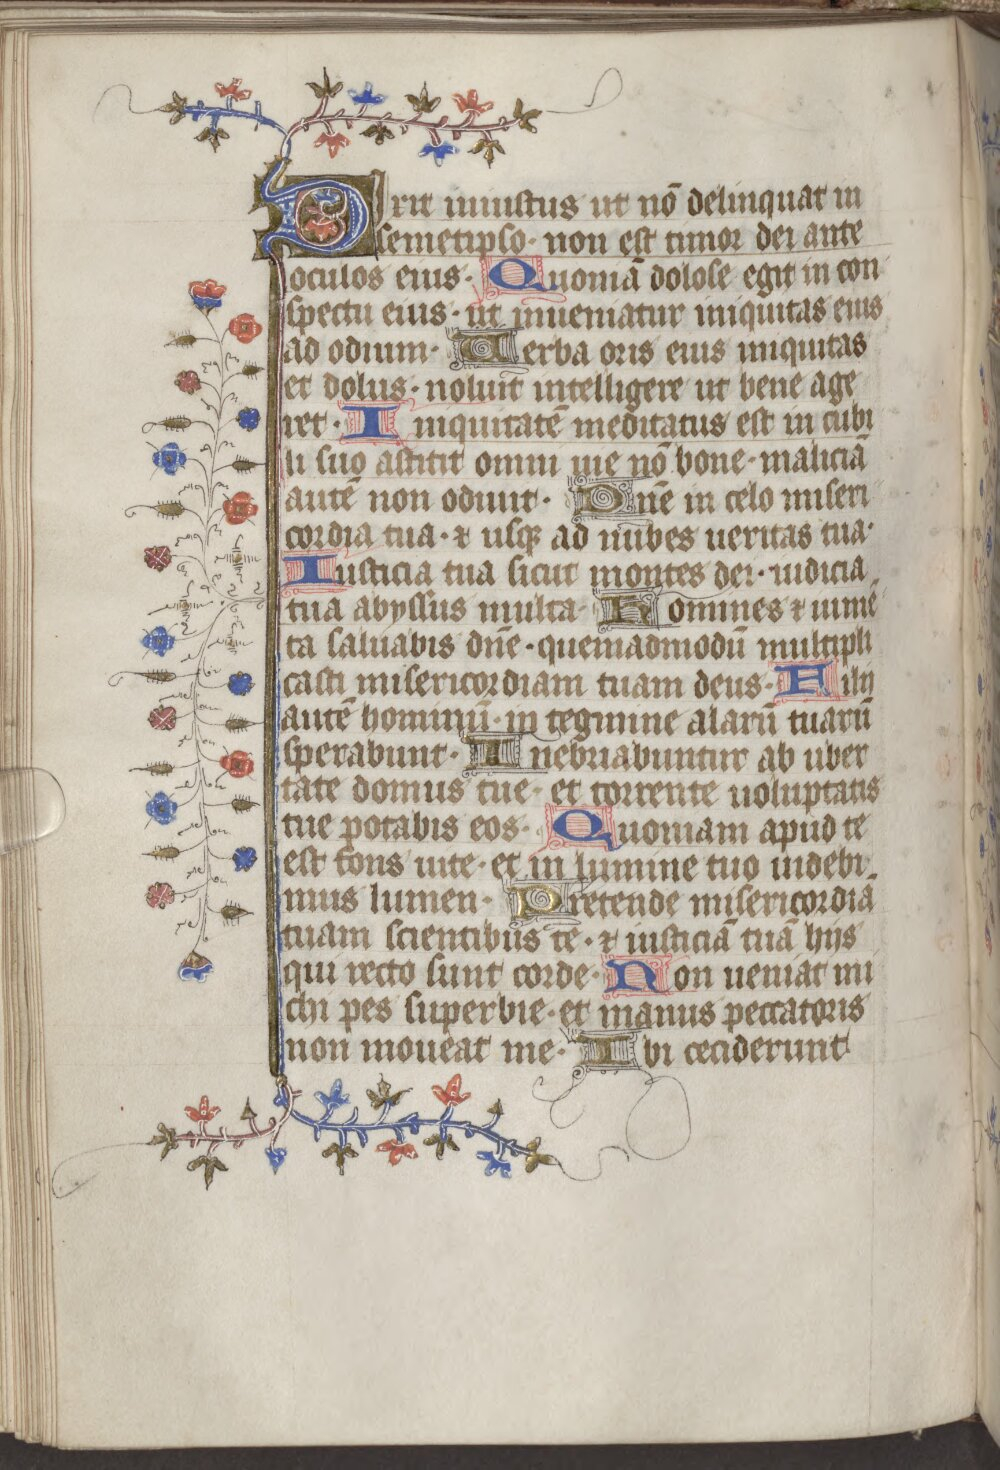 Dixit iniustus ut nō delinquat in
semetipso · non est timor dei ante
oculos eius · Quoniā dolose egit in con
spectu eius · ut inueniatur iniquitas eius
ad odium · Uerba oris eius iniquitas
et dolus · noluit intelligere ut bene age
ret · Iniquitatē meditatus est in cubi
li suo astitit omni uie nō bone · maliciā
autē non odiuit · Dn̄e in celo miseri
cordia tua · ⁊ usq̨ ad nubes ueritas tua ·
Iusticia tua sicut montes dei · iudicia
tua abyssus multa · Homines ⁊ iumē
ta saluabis dn̄e · quemadmodū multipli
casti misericordiam tuam deus · Filij
autē hominū · in tegmine alarū tuarū
sperabunt · Inebriabuntur ab uber
tate domus tue · et torrente uoluptatis
tue potabis eos · Quoniam apud te
est fons uite · et in lumine tuo uidebi
mus lumen · Pretende misericordiā
tuam scientibus te · ⁊ iusticiā tuā hijs
qui recto sunt corde · Non ueniat mi
chi pes superbie · et manus peccatoris
non moueat me · Ibi ceciderunt